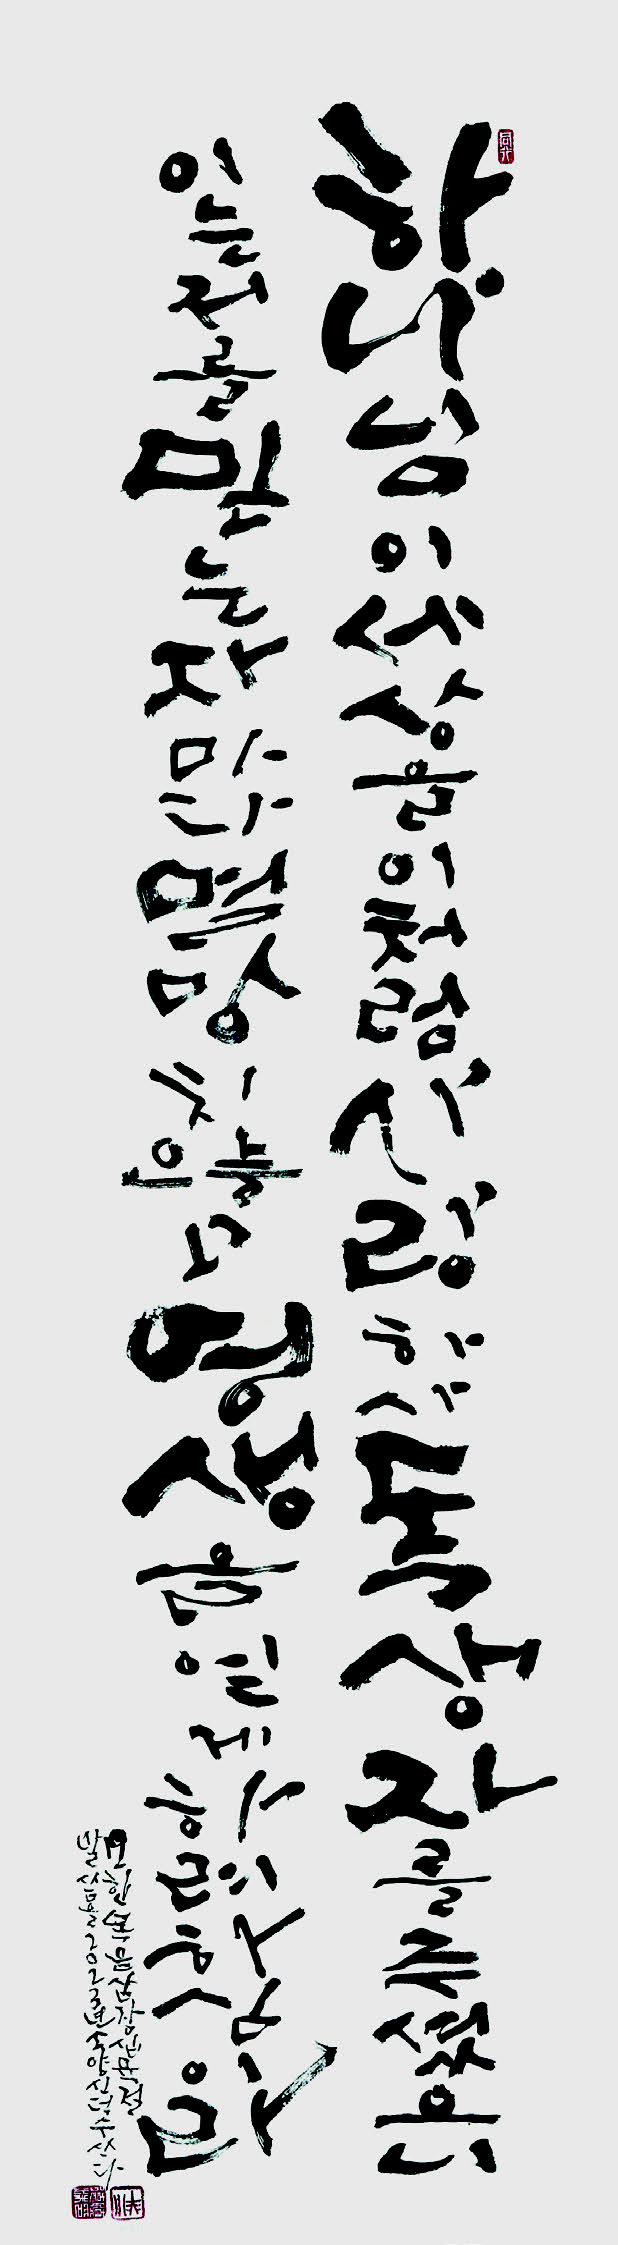 하나님이 세상을 이처럼 사랑하사 독생자를 주셨으니
이는 저를 믿는 자마다 멸망치 않고 영생을 얻게 하려 하심이라
요한복음 삼장 십육절
말씀을 2022년 쓰다